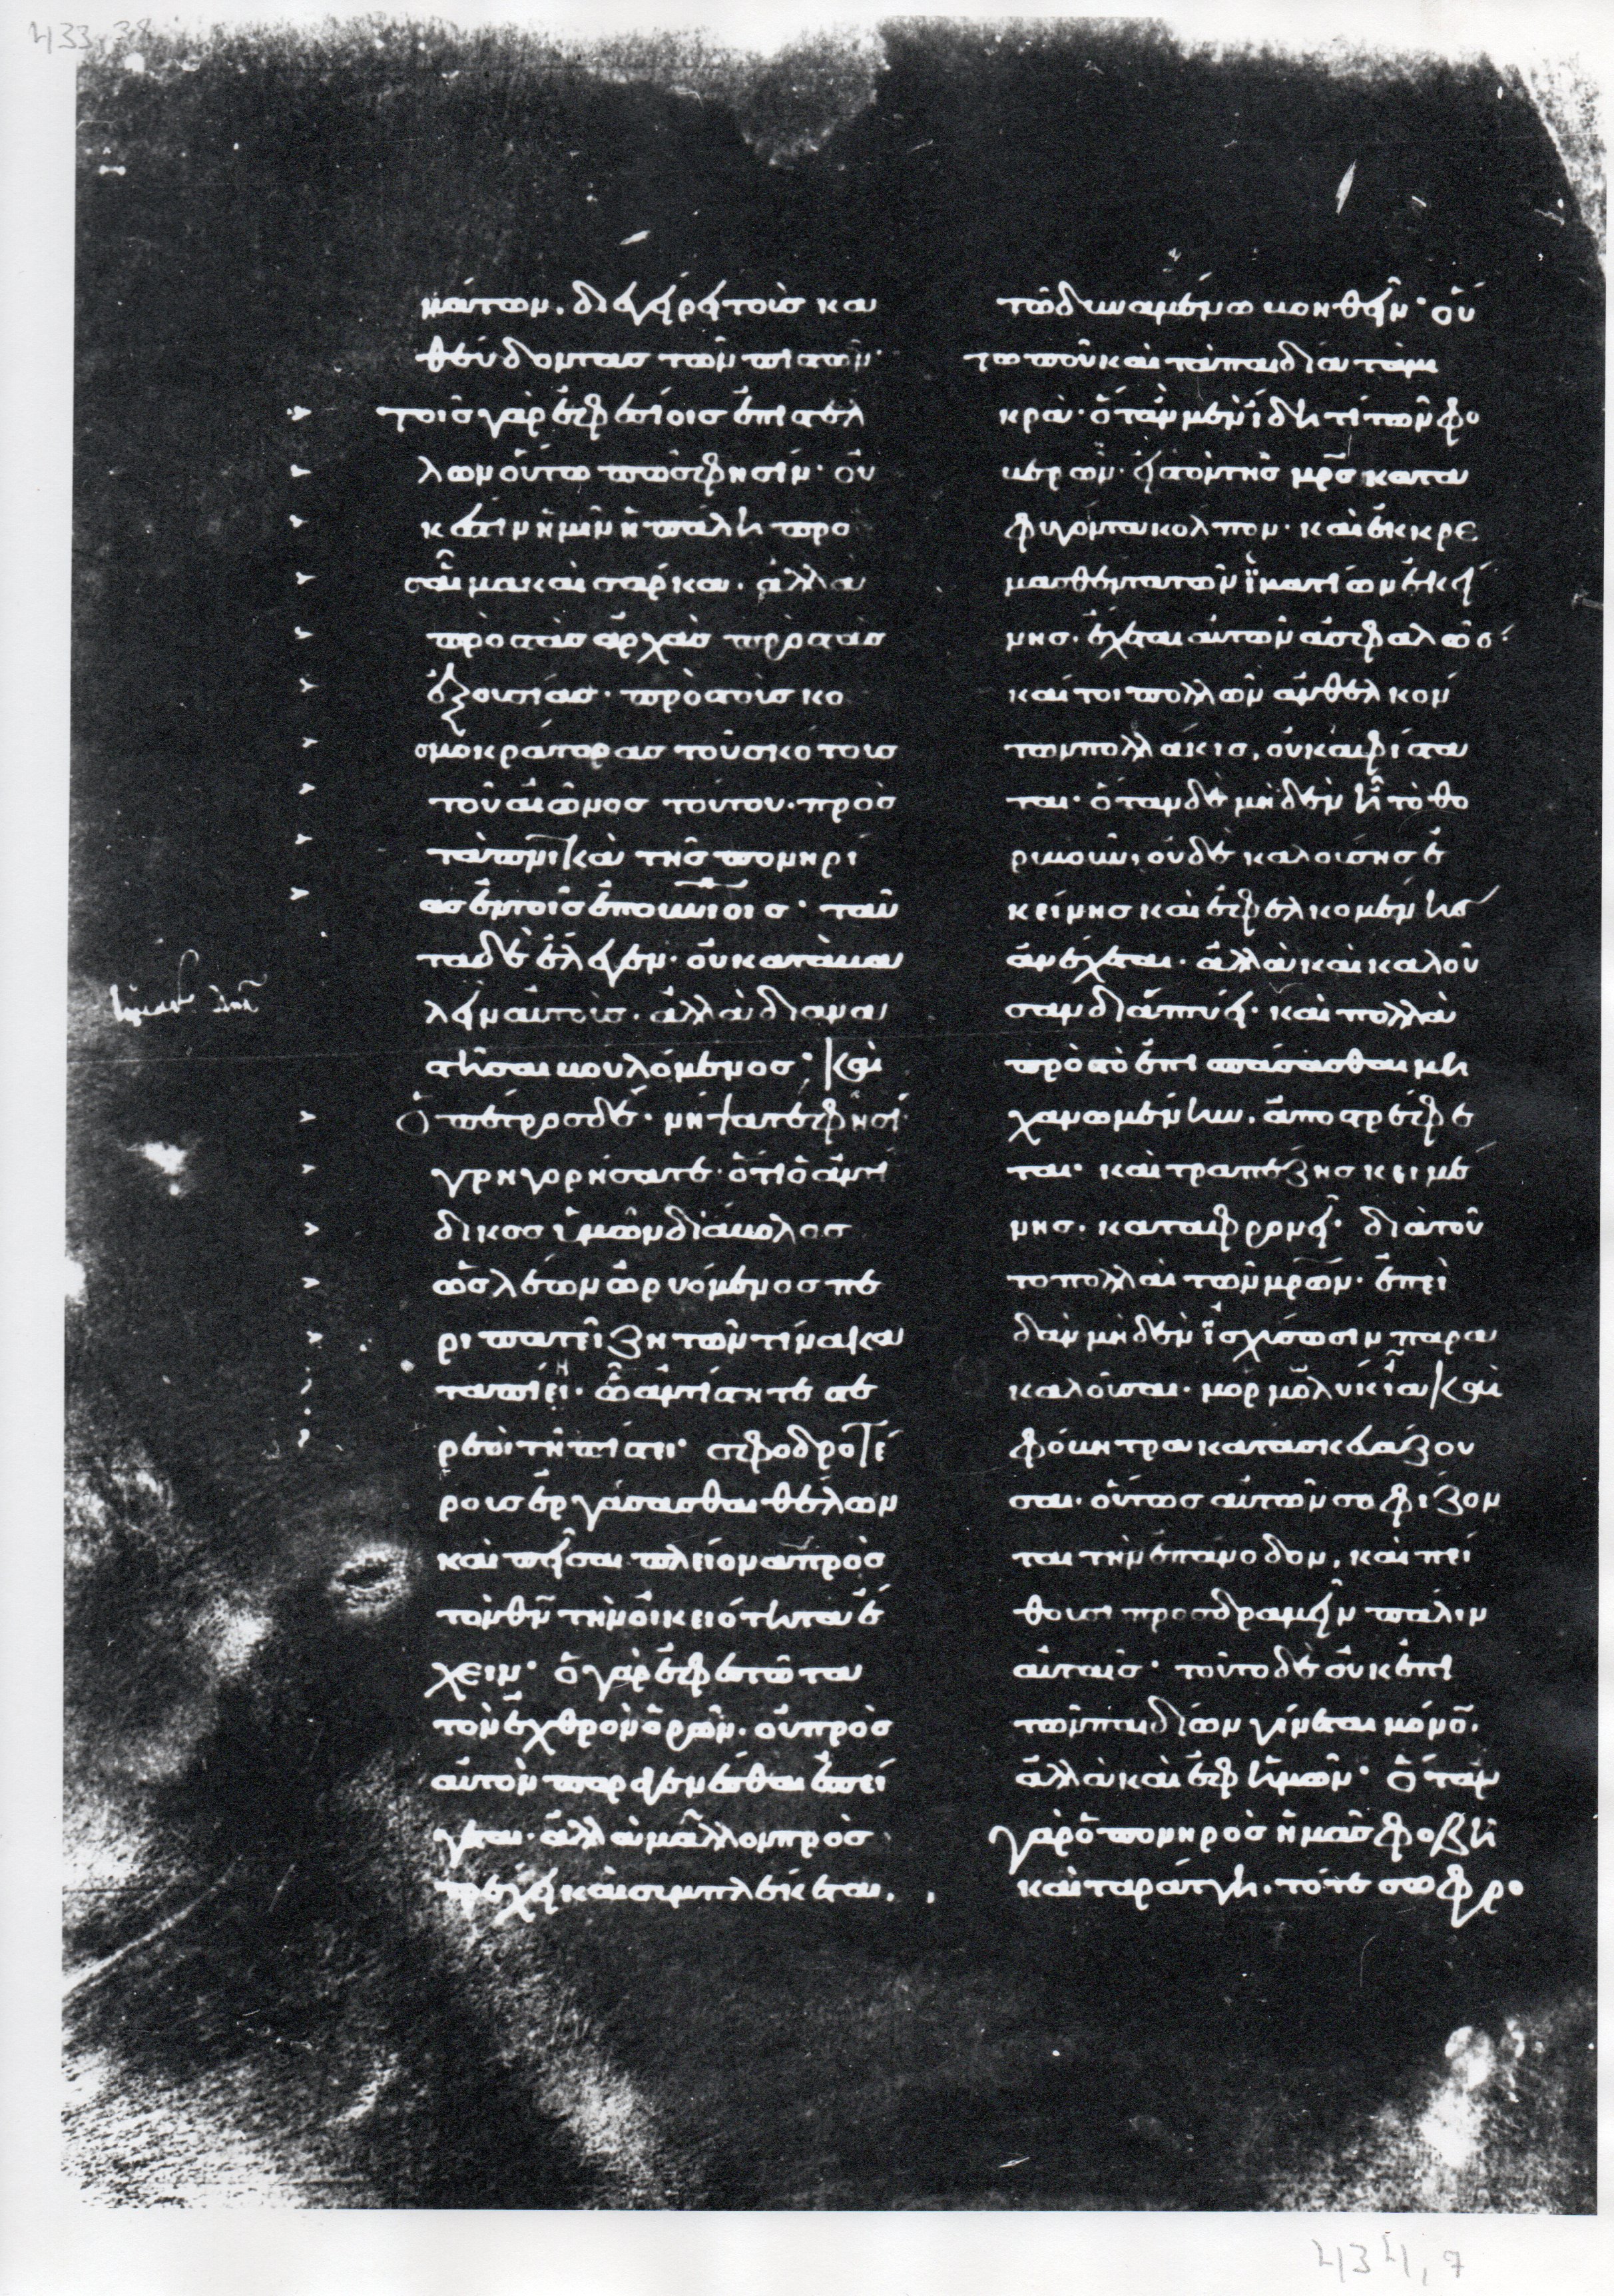 433,38
μάτων. διεγέρει τοὺς κα
θεύδοντας τῶν πιστῶν·
τοῖς γὰρ ἐφεσίοις ἐπιστέλ
λων οὕτω πώς φησίν· οὐ
κ ἔστιν ἡμῖν ἡ πάλη προ
σαἷμα καὶ σάρκα. ἀλλὰ
πρὸς τὰς ἀρχὰς πρὸς τὰς
ἐξουσίας· πρὸς τοὺς κο
σμοκράτορας τοῦ σκότους
τοῦ αἰῶνος τούτου. πρὸς
τὰ πνικὰ τῆς πονηρί
ας ἐν τοῖς ἐπουνίοις· ταῦ
τα δὲ ἔλεγεν· οὐ καταβα
λεῖν αὐτοὺς. ἀλλὰ διανα
στῆσαι βουλόμενος· καὶ
ὁ πέτρος δὲ· νήψατέ φησί·
γρηγορήσατε· ὅτι ὁ ἀντί
δικος ὑμῶν διάβολος
ὡς λέων ὠρυόμενος πε
ριπατεῖ ζητῶν τίνα κα
ταπίει· ᾧ ἀντίστητε στε
ρεοὶ τῇ πίστει· σφοδροτέ
ρους ἐργάσασθαι θέλων
καὶ πεῖσαι πλείονα πρὸς
τὸν θν τὴν οἰκειότητα ἔ
χειν· ὁ γὰρ ἐφεστῶτα
τὸν ἐχθρὸν ὁρῶν. οὐ πρὸς
αὐτὸν παραγενέσθαι ἐπεί
γεται· ἀλλὰ μᾶλλον πρὸς
τρέχει καὶ συμπλέκεται.
τῶ δυναμένω βοηθεῖν· οὕ
τω που καὶ τὰ παιδία τὰ μι
κρὰ· ὅταν μὲν ἴδη τί τῶν φο
βερῶν· εἰς τὸν τῆς μρς κατα
φεύγοντα κόλπον· καὶ ἐκκρε
μασθέντα τῶν ἱματίων ἐκεί
νης. ἔχεται αὐτῶν ἀσφαλῶς·
καί τοι πολλῶν ἀνθελκόν
των πολλάκις, οὐκ ἀφίστα
ται· ὅταν δὲ μηδὲν ἦ τὸ θο
ρυβοῦν, οὐδὲ καλούσης ἐ
κείνης καὶ ἐφελκομένης
ἀνέχεται. ἀλλὰ καὶ καλοῦ
σαν διαπτύει· καὶ πολλὰ
πρὸς τὸ ἐπισπάσασθαι μη
χανωμένην. ἀποστρέφε
ται· καὶ τραπέζης κειμέ
νης. καταφρονεῖ· διὰ τοῦ
το πολλαὶ τῶν μρων· ἐπει
δὰν μηδὲν ἰσχύσωσιν παρα
καλοῦσαι. μορμολύκεια καὶ
φόβητρα κατασκευάζου
σαι· οὕτως αὐτῶν σοφίζον
ται τὴν ἐπάνοδον, καὶ πεί
θουσι προσδραμεῖν πάλιν
αὐταῖς· τοῦτο δὲ οὐκ ἐπὶ
τῶν παιδίων γίνεται μόνο.
ἀλλὰ καὶ ἐφ ἡμῶν· ὅταν
γὰρ ὁ πονηρὸς ἡμᾶς φοβῆ
καὶ ταράττη. τότε σωφρο
434,7